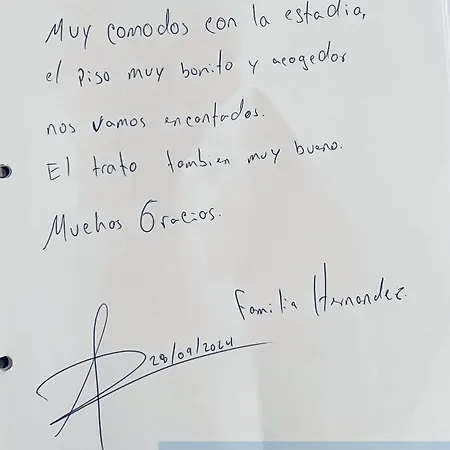 Muy comodos con la estadia,
el piso muy bonito y acogedor
nos vamos encantados.
El trato tambien muy bueno.
Muchas Gracias.
Familia Hernandez.
28/09/2024